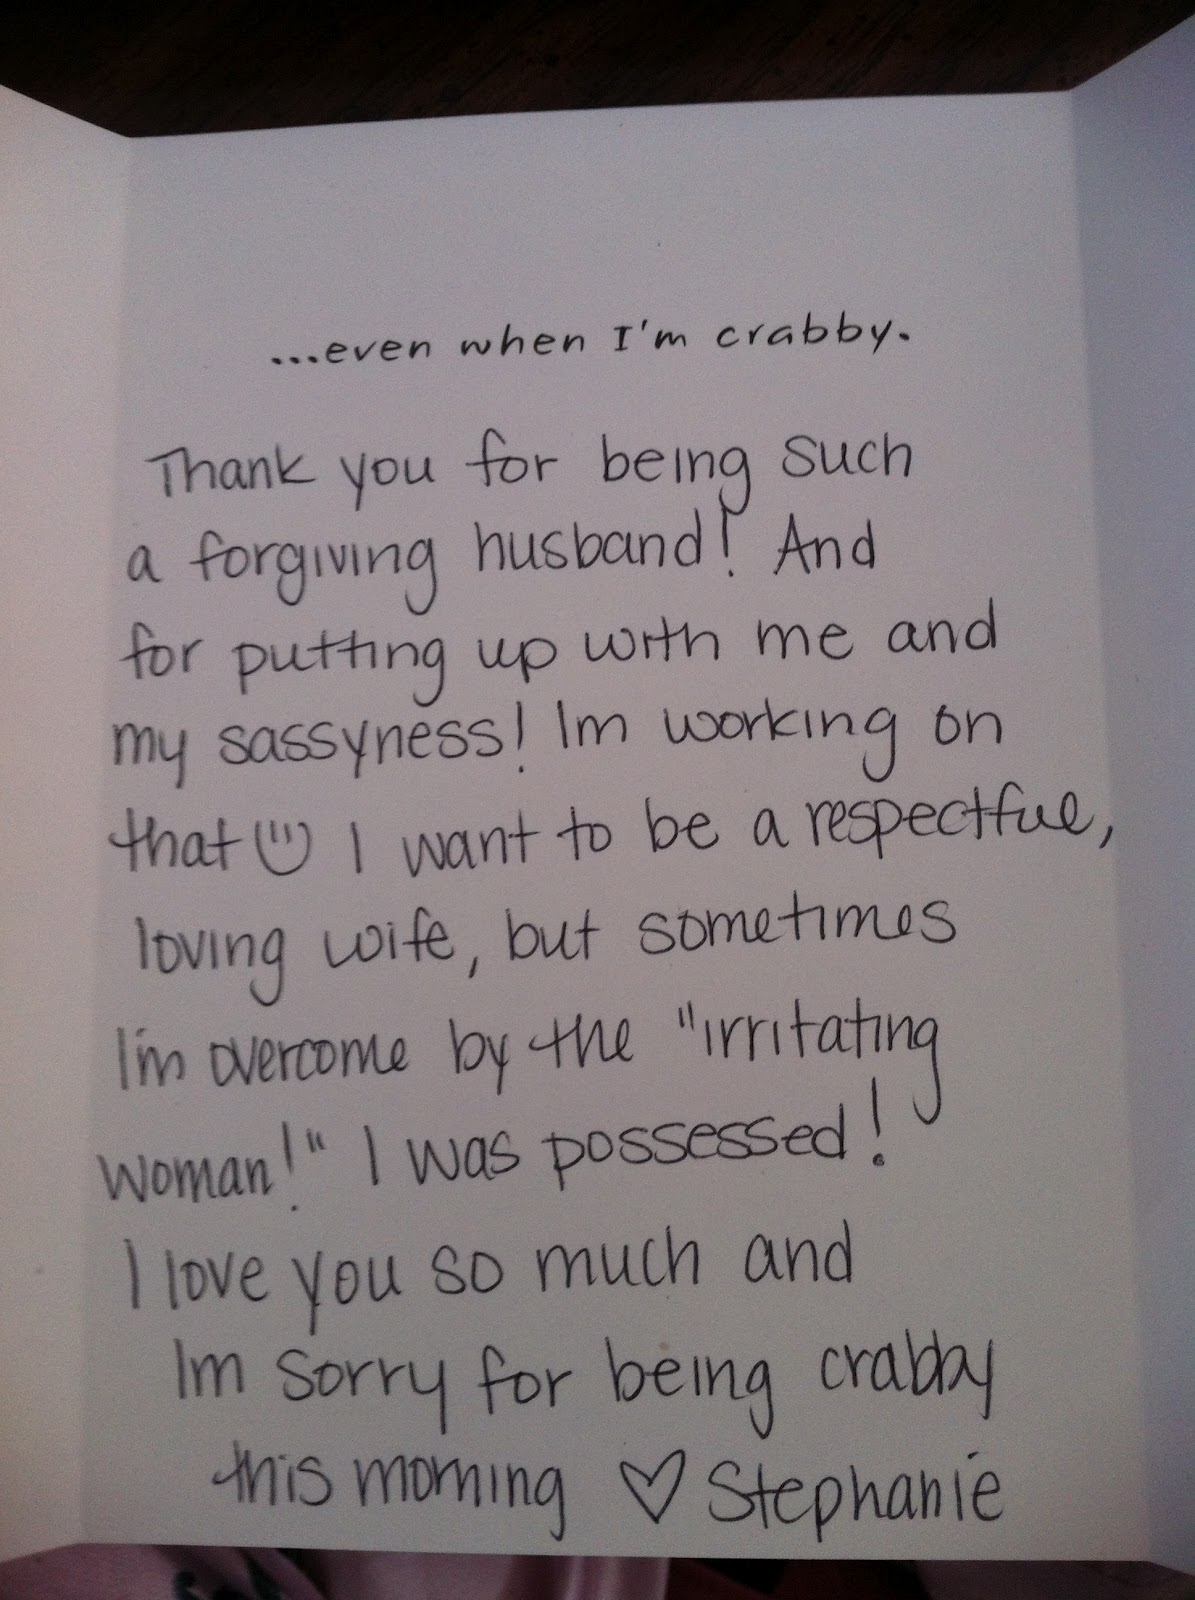 ...even when I'm crabby.
Thank you for being such
a forgiving husband! And
for putting up with me and
my sassyness! Im working on
that I want to be a respectful,
loving wife, but sometimes
I'm overcome by the "irritating
woman!" I was possessed!
I love you so much and
Im sorry for being crabby
this morning ♡ Stephanie